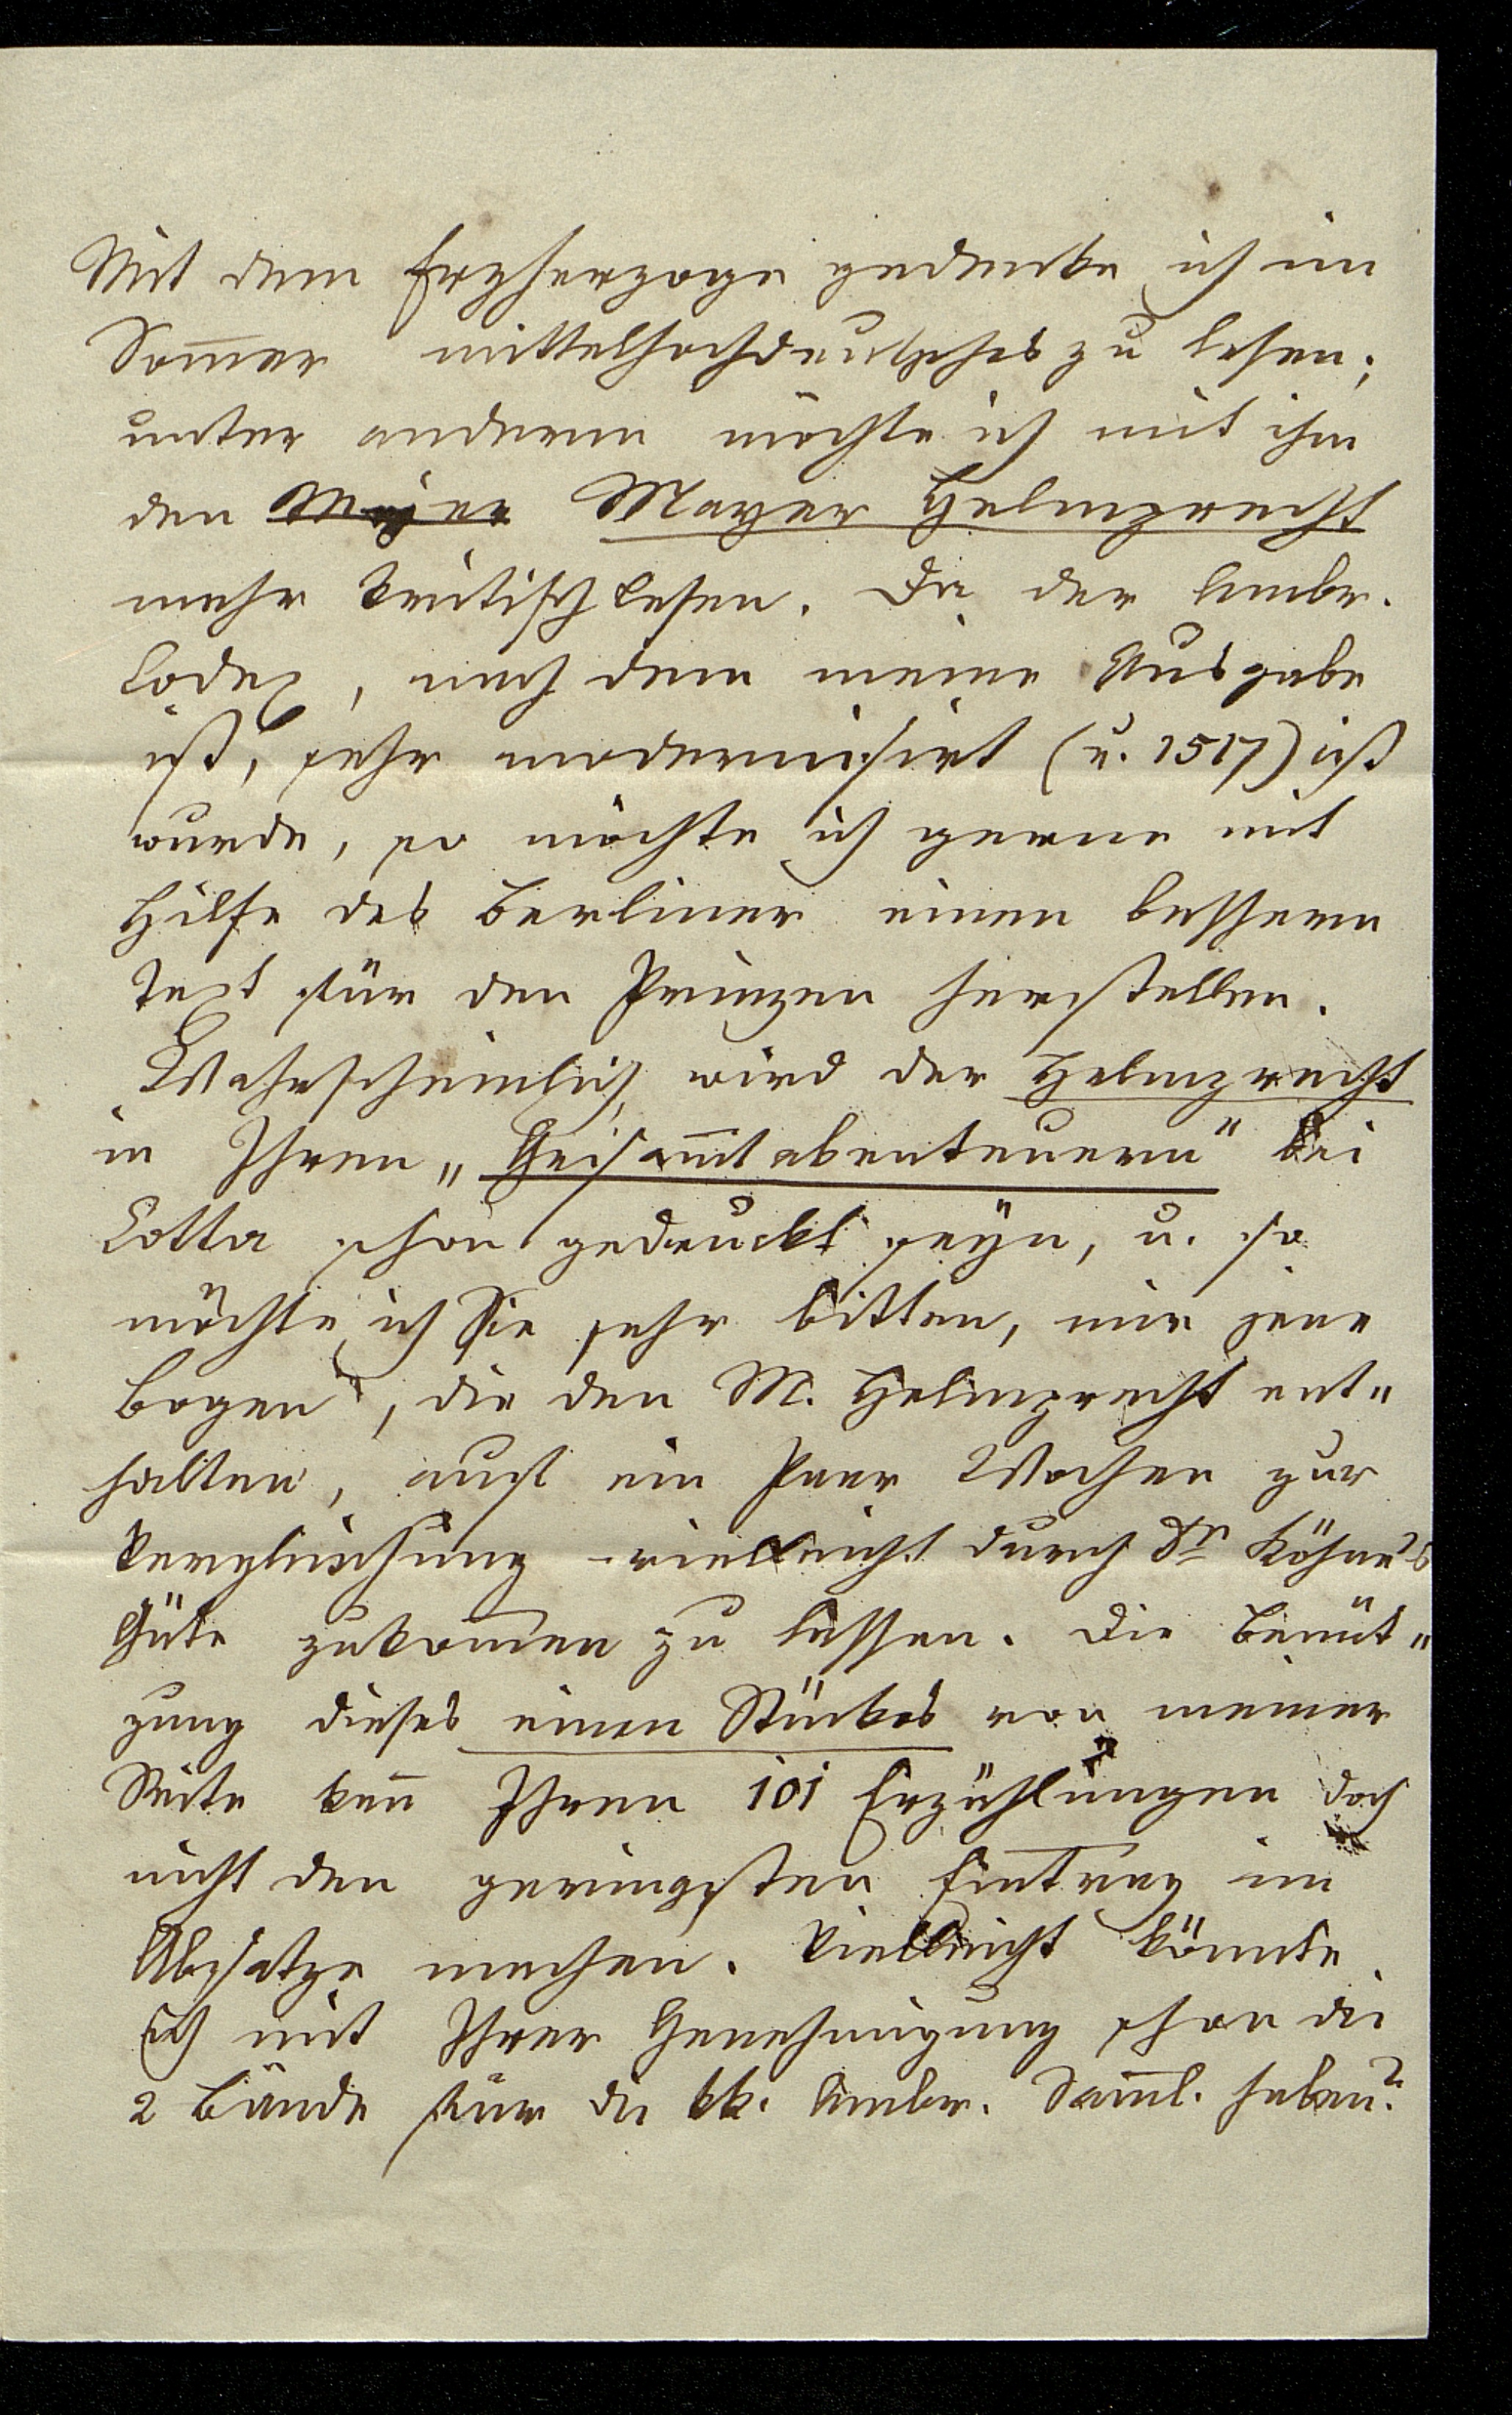 Mit dem Erzherzoge gedenke ich im
Som̄er mittelhochdeutsches zu lesen;
unter anderem möchte ich mit ihm
den Mayer Mayer Helmprecht
mehr kritisch lesen. Da der Ambr.
Codex, nach dem meine Ausgabe
ist, sehr modernisirt (u. 1517) ist
wurde, so möchte ich gerne mit
Hilfe des Berliner einen bessern
Text für den Prinzen herstellen.
Wahrscheinlich wird der Helmprecht
in Ihren „Gesam̄tabenteuern" bei
Cotta schon gedruckt seyn, u. so
möchte ich Sie sehr bitten, mir jene
Bogen, die den M. Helmprecht ent„
halten, auf ein Paar Wochen zur
Vergleichung – vielleicht durch Dr Köhne's
Güte zukom̄en zu lassen. Die Benüt„
zung dieses einen Stückes von meiner
Seite kan̄ Ihren 101 Erzählungen doch
nicht den geringsten Eintrag im
Absatze machen. Vielleicht könnte
ich mit Ihrer Genehmigung schon die
2 Bände für die kk. Ambr. Sam̄l. haben?